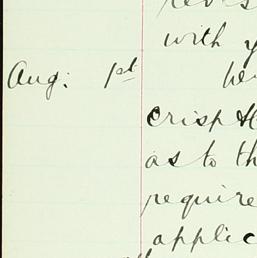 with
Aug: 1st
crisp
as to th
require
applic